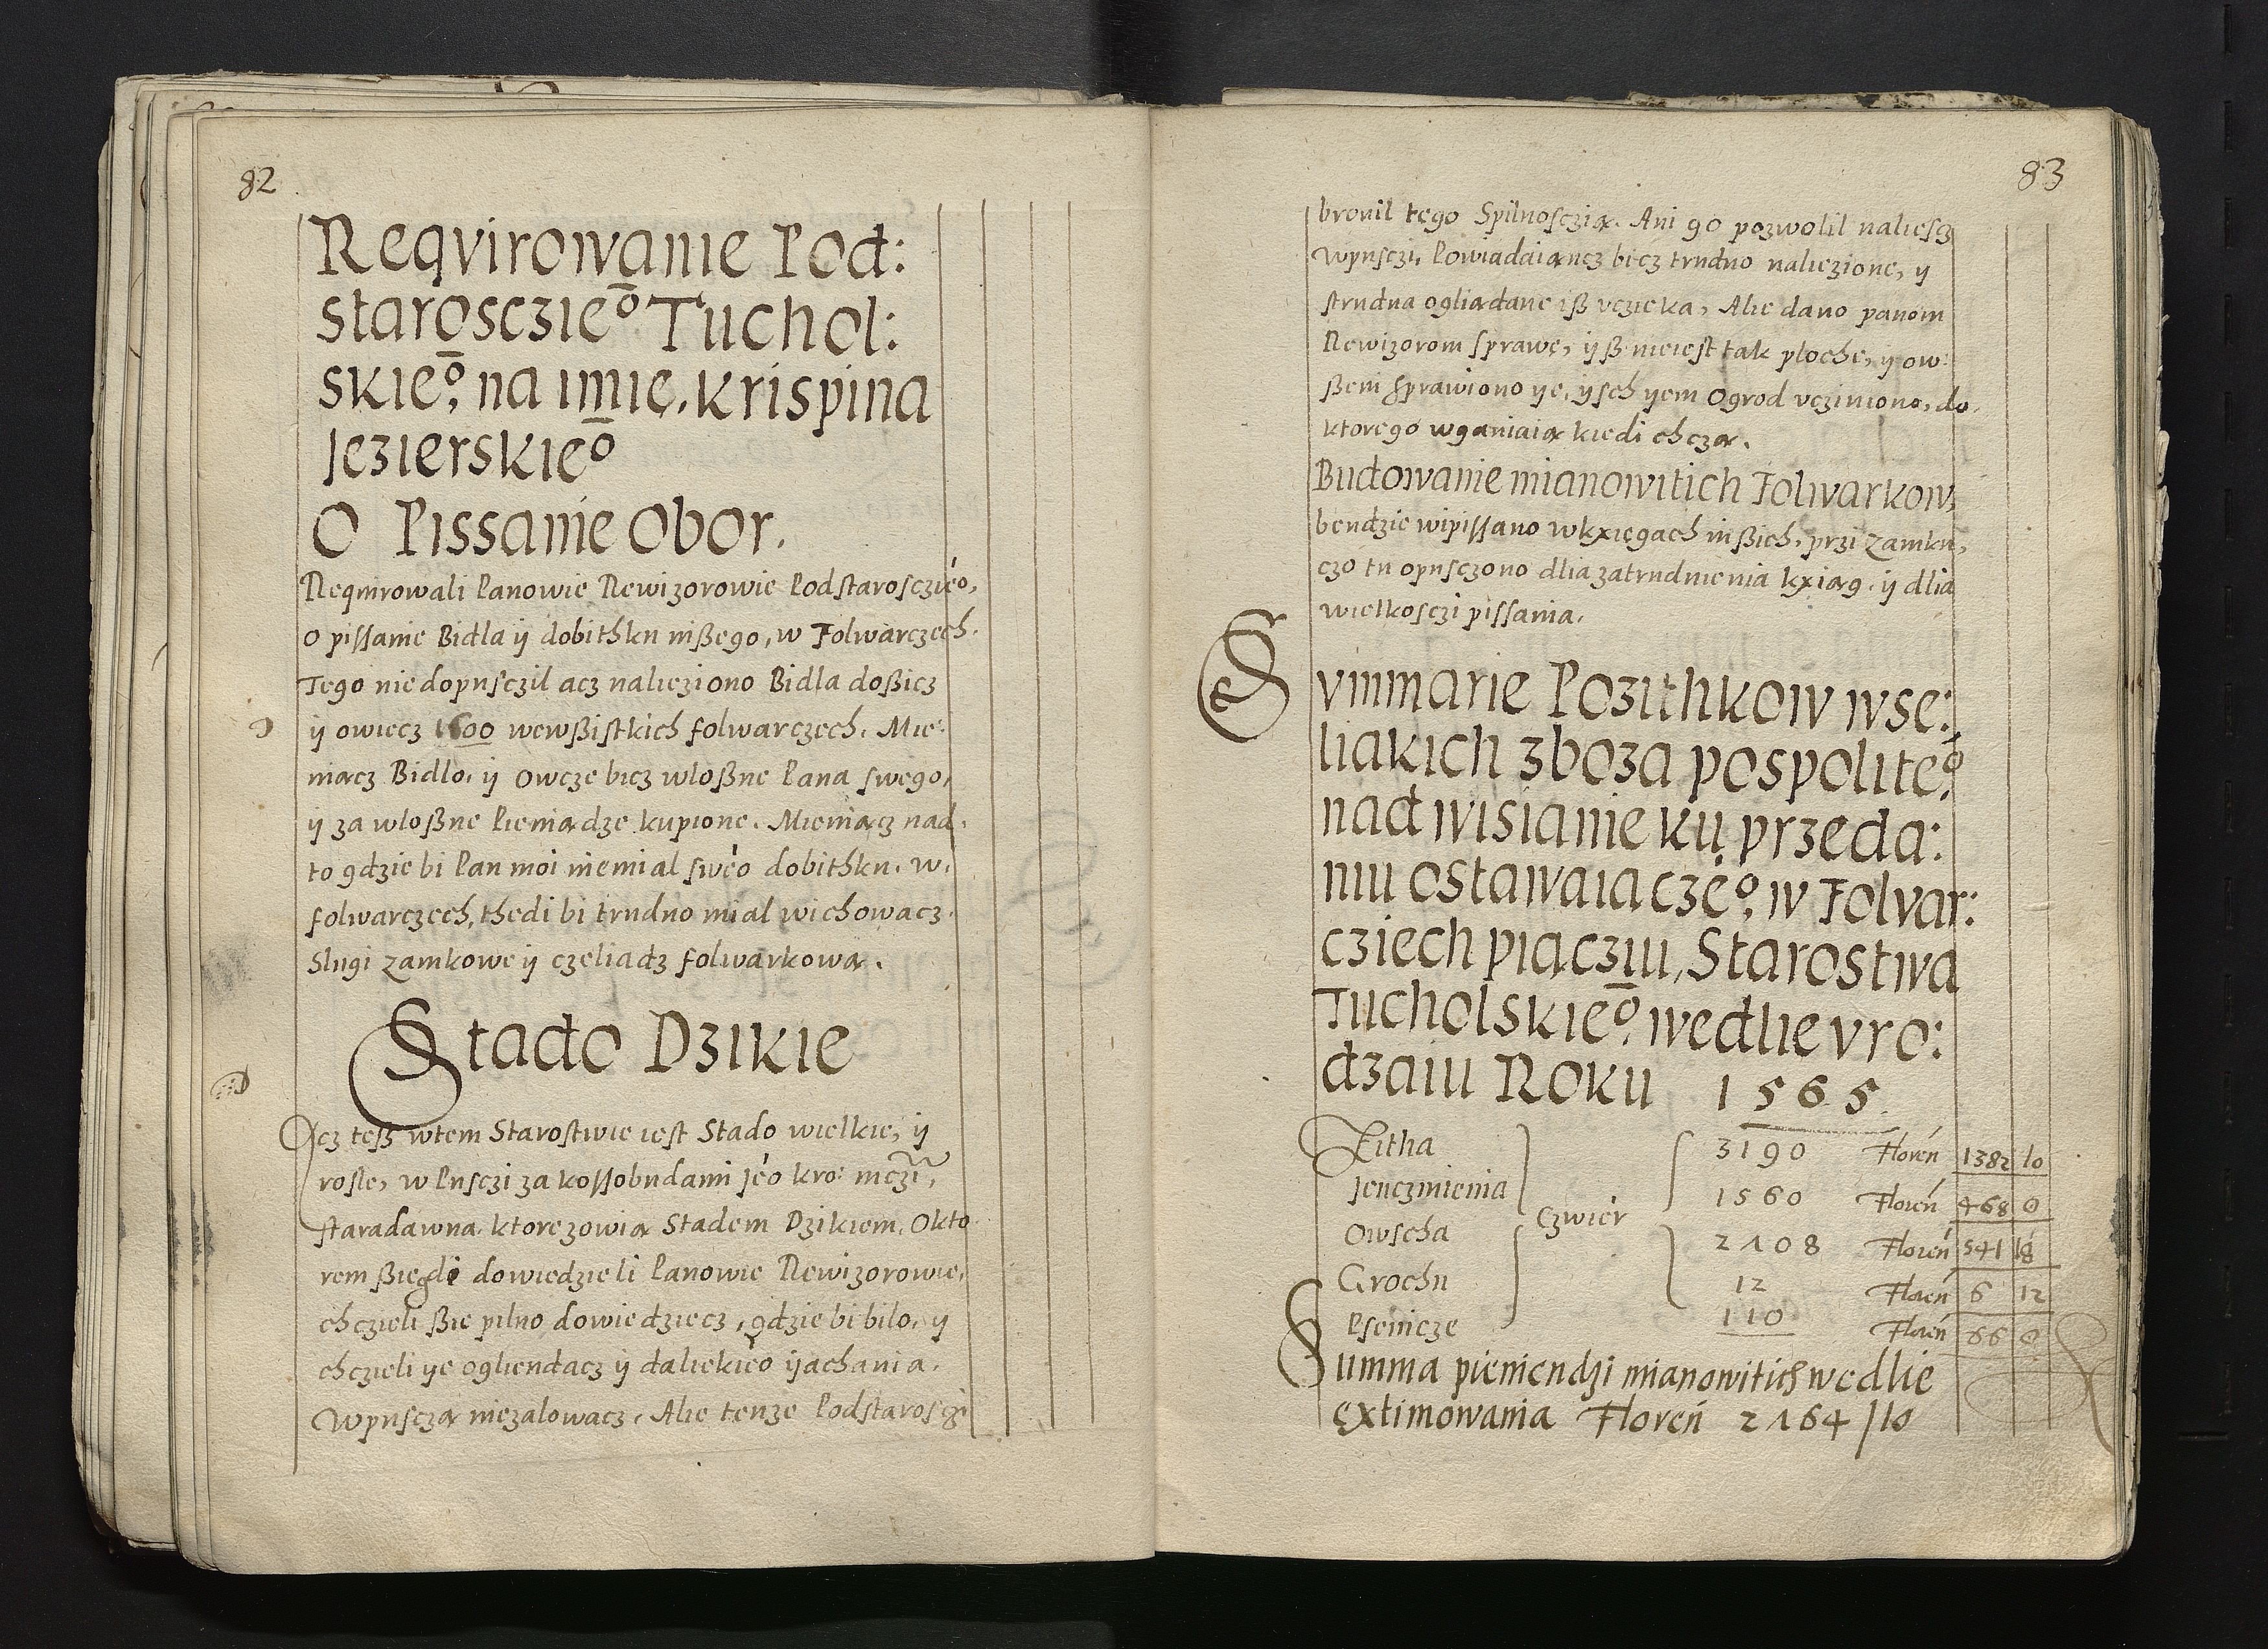 82
Reqvirowanie Pod:
starosczie͠o Tuchol:
skie͠o, na imię, krispina
Jezierskie͠o
O Pissanie Obor.
Reqnirowali Panowie Rewizorowie Podstarosczieo,
o pissanie Bidla ÿ dobithku inßego, w Folwarczech.
Tego nie dopusczil acz nalieziono Bidla doßicz
ÿ owiecz 1600 wewßistkich folwarczech. Mie:
niącz Bidlo, ÿ Owcze bicz wloßne Pana swego,
ÿ za wloßne Pieniądze kupione. Mieniącz nad
to gdzie bi Pan moi niemial sweo dobithku, w
folwarczech, thedi bi trudno mial wichowacz
Slugi zamkowe ÿ czeliadz folwarkową.
Stado Dzikie
Acz teß wtem Starostwie iest Stado wielkie, ÿ
rosle, w Pusczi za kossobudami Jeo kro: mczi,
staradawna, ktore zowią Stadem Dzikiem, Okto
rem ßie gdi dowiedzieli Panowie Rewizorowie,
chczieli ßie pilno dowiedziecz, gdzie bi bilo, ÿ
chczieli ÿe ogliendacz ÿ daliekieo ÿachania.
Wpusczą niezalowacz, Alie tenze Podstarosczi
83
bronil tego Spilnosczią. Ani go pozwolil naliesz
Wpusczi, Powiadaiąncz bicz trudno naliezione, ÿ
strudna oglądane iß vczieka, Alie dano panom
Rewizorom sprawę, ÿß nieiest tak ploche, ÿ ow:
ßem sprawiono ÿe, ÿsch ÿem Ogrod vcziniono, do
ktorego wganiaią kiedi chczą.
Budowanie mianowitich Folwarkow,
bendzie wipissano wkxięgach inßich, przi zamku,
czo tu opusczono dlia zatrudnienia kxiąg, ÿ dlia
wielkosczi pissania.
Svmmarie Pozithkow wse:
liakich zboza pospolite͠o,
nad wisianie ku przeda:
niu ostawaiącze͠o, w Folwar:
cziech piącziu, Starostwa
Tucholskie͠o, wedlie vro:
dzaiu Roku 1565
Zitha 3190 Floren 1382 10
Jenczmienia 1560 Floren 468 0
czwier
Owscha 2108 Floren 541 18
Grochu 12 Floren 6 12
Psenicze 110 Floren 66 0
Summa pieniendzi mianowitich wedlie
extimowania Floren 2164 / 10